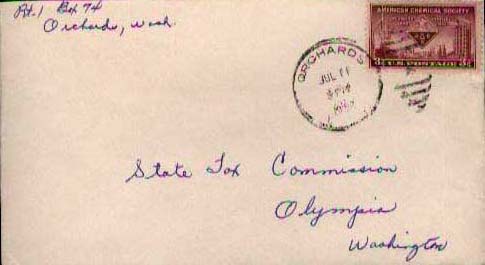 Rt. 1 Box 74
Orchards, Wash.
AMERICAN CHEMICAL SOCIETY
3¢ U.S. POSTAGE 3¢
ORCHARDS
JUL 11
PM
State Tax Commission
Olympia
Washington